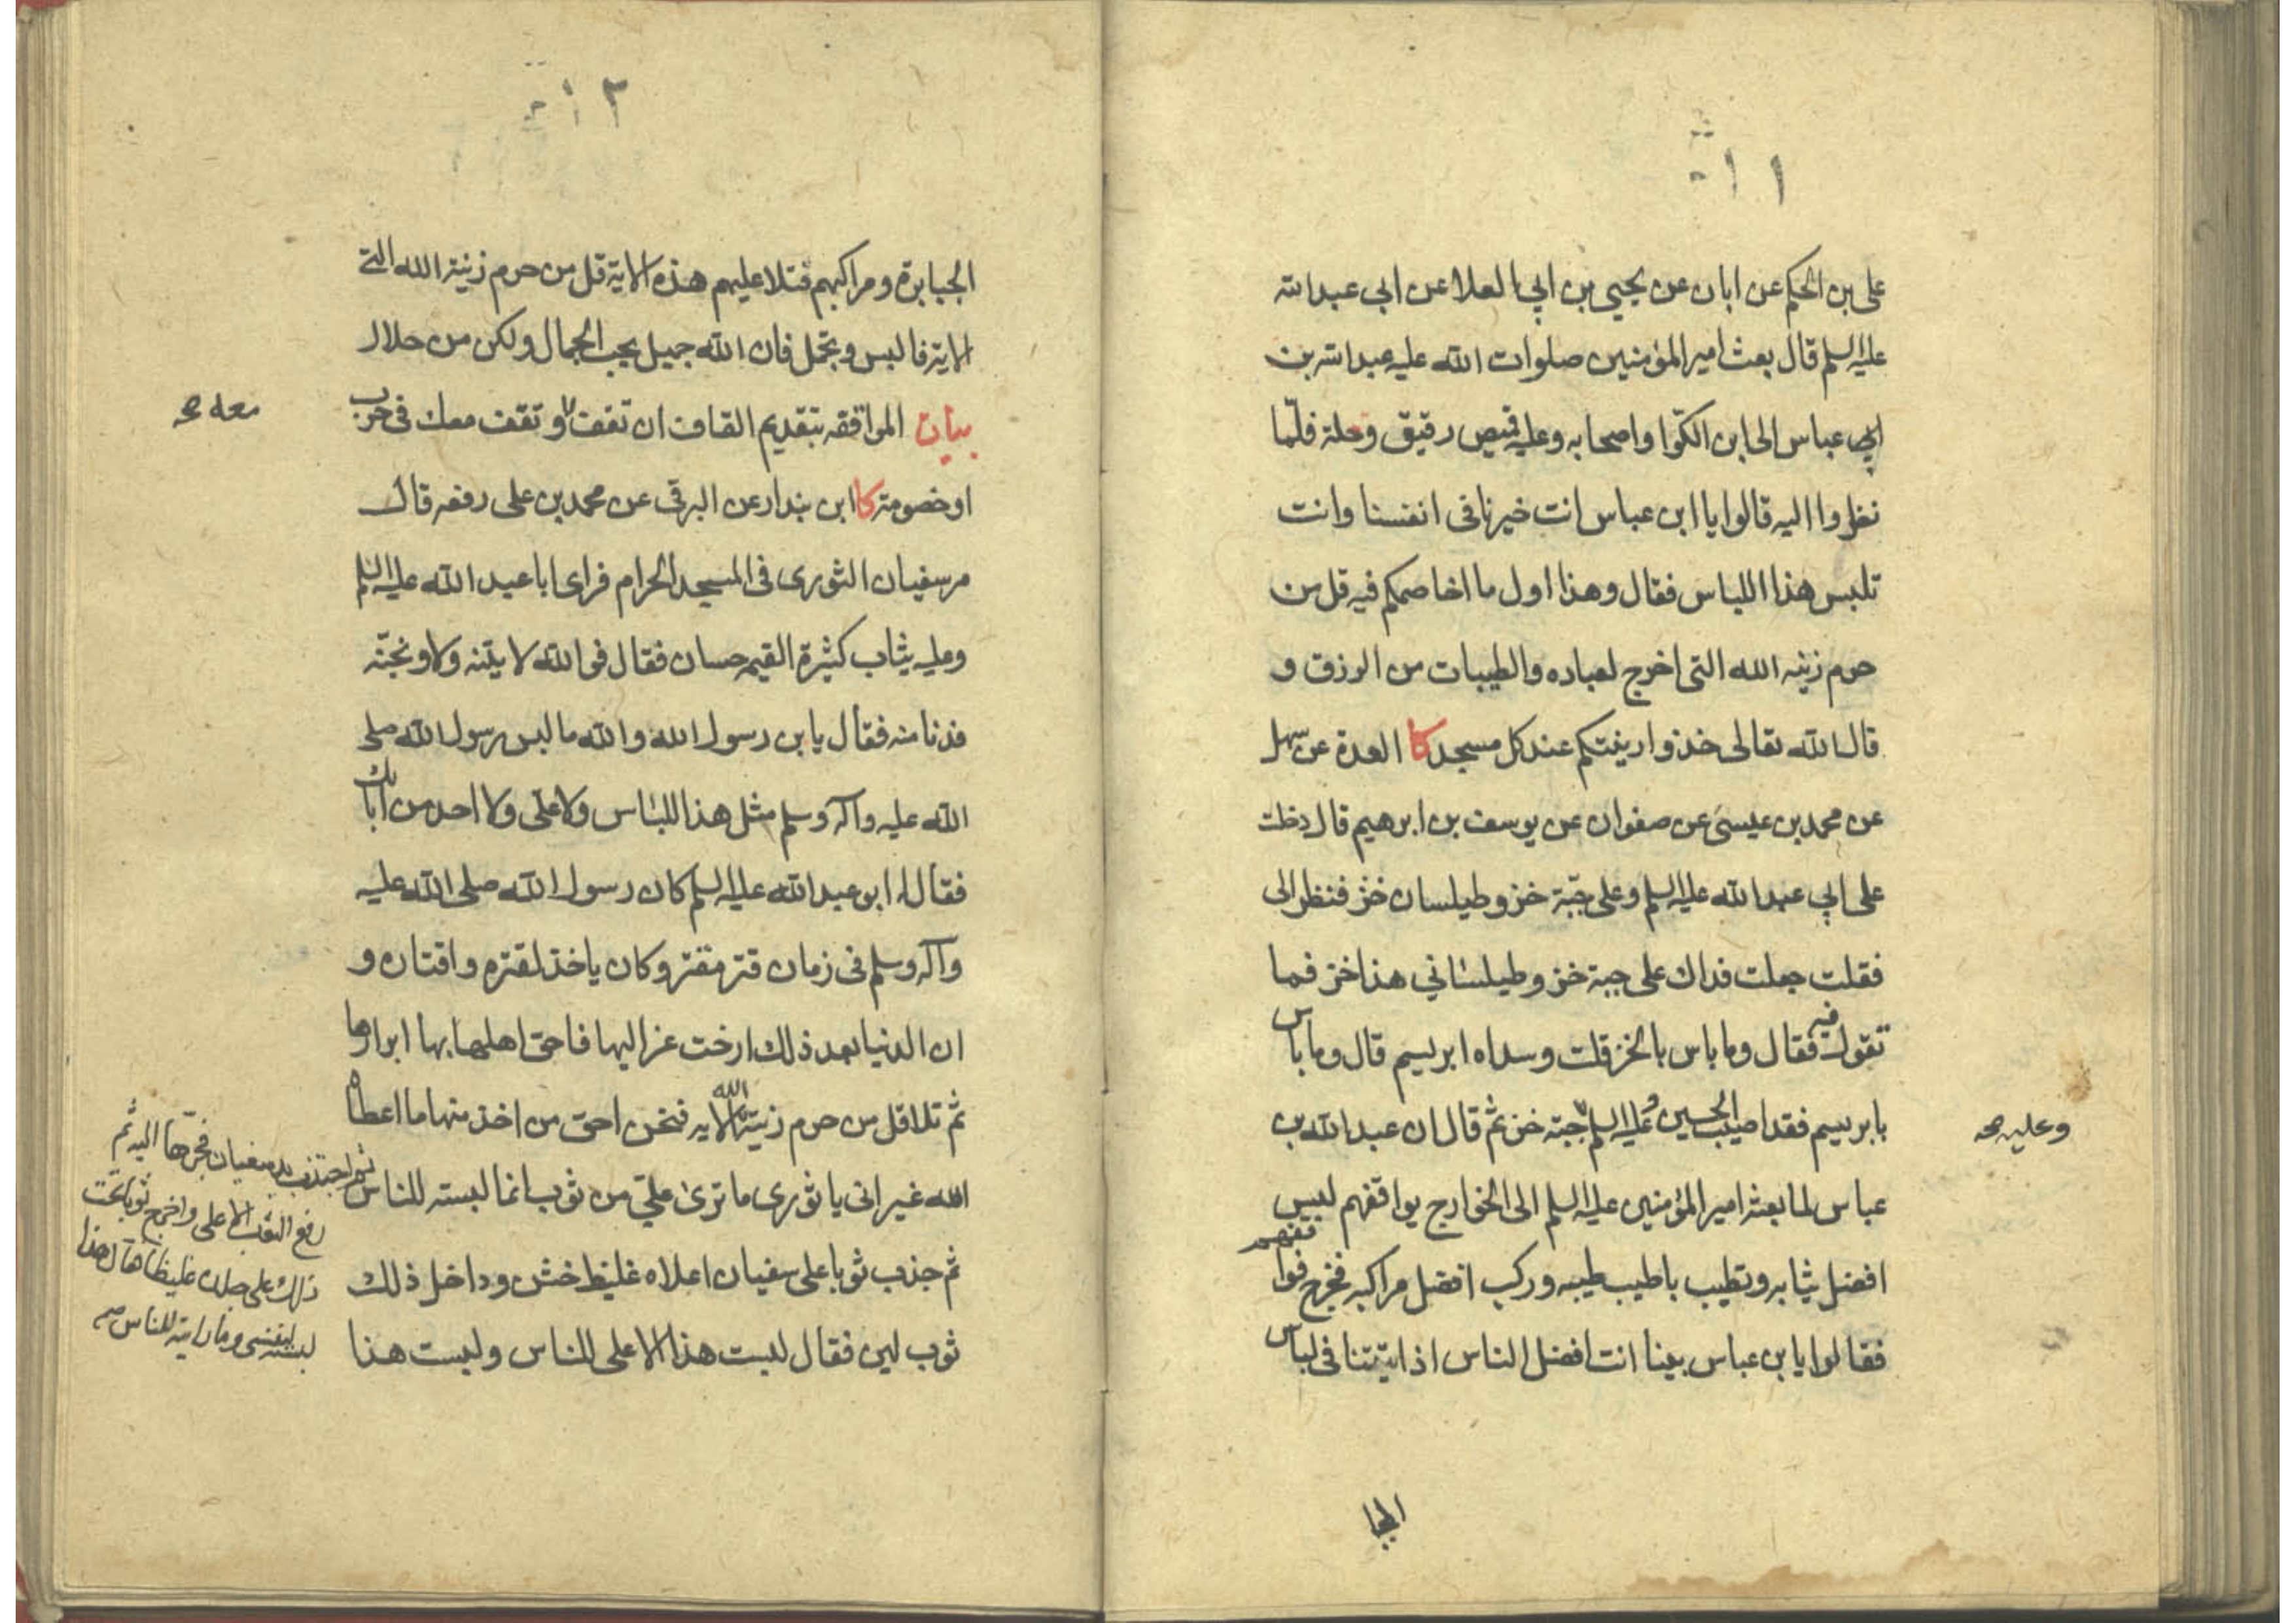 ١١
على بن الحكم عن ابان عن يحيى بن ابي العلا عن ابي عبد الله
عليه السلم قال بعث امير المؤمنين صلوات الله عليه عبد الله بن
عباس الى ابن الكوّا واصحابه وعليه قميص رقيق وحلة فلمّا
نظروا اليه قالوا يا ابن عباس انت خيرنا في انفسنا وانت
تلبس هذا اللباس فقال وهذا اول ما اخاصمكم فيه قل من
حرم زينه الله التى اخرج لعباده والطيبات من الرزق و
قال الله تعالى خذوا زينتكم عند كل مسجد كا العدة عن سهل
عن محمد بن عيسى عن صفوان عن يوسف بن ابرهيم قال دخلت
على ابي عبد الله عليه السلم وعلى جبّة خز وطيلسان خز فنظر الى
فقلت جعلت فداك على جبة خز وطيلساني هذا خز فما
تقول فيه فقال وما باس بالخز قلت وسداه ابريسم قال وما باس
بابريسم فقد اصيب الحسين عليه السلم وعليه جبّة خز ثم قال ان عبد الله بن
وعليه صح
عباس لما بعثه امير المؤمنين عليه السلم الى الخوارج يواقفهم لبس
افضل ثيابه وتطيب باطيب طيبه وركب افضل مراكبه فخرج فواقفهم
فقالوا يا بن عباس بينا انت افضل الناس اذ اتيتنا في لباس
الجبا
١٢
الجبابرة ومراكبهم فتلا عليهم هذه الاية قل من حرم زينة الله التي
الاية فالبس وتجمل فان الله جميل يحب الجمال وليكن من حلال
بيان الموافقه بتقديم القاف ان تقف وتقف معك في حرب
معه صح
او خصومة كا ابن بندار عن البرقى عن محمد بن على رفعه قال
مر سفيان الثورى في المسجد الحرام فراى ابا عبد الله عليه السلم
وعليه ثياب كثيرة القيمه حسان فقال والله لاتينه ولاوبخنّه
فدنا منه فقال يا بن رسول الله والله ما لبس رسول الله صلى
الله عليه وآله وسلم مثل هذا اللباس ولا على ولا احد من ابائك
فقال له ابو عبد الله عليه السلم كان رسول الله صلى الله عليه
وآله وسلم في زمان قتر مقتر وكان ياخذ لقتره واقتاره و
ان الدنيا بعد ذلك ارخت عزاليها فاحق اهلها بها ابرارها
ثم تلا قل من حرم زينة الله الايه فنحن احق من اخذ منها ما اعطاه
الله غير انى يا ثورى ما ترى علىّ من ثوب انما لبسته للناس
ثم اجتذب يد سفيان فجرّها اليه ثم
رفع الثوب الاعلى واخرج ثوبا تحت
ذلك على جلده غليظا فقال هذا
لبسته لنفسى وما رايته للناس صح
ثم جذب ثوبا على سفيان اعلاه غليظ خشن وداخل ذلك
ثوب لين فقال لبست هذا الاعلى للناس ولبست هذا